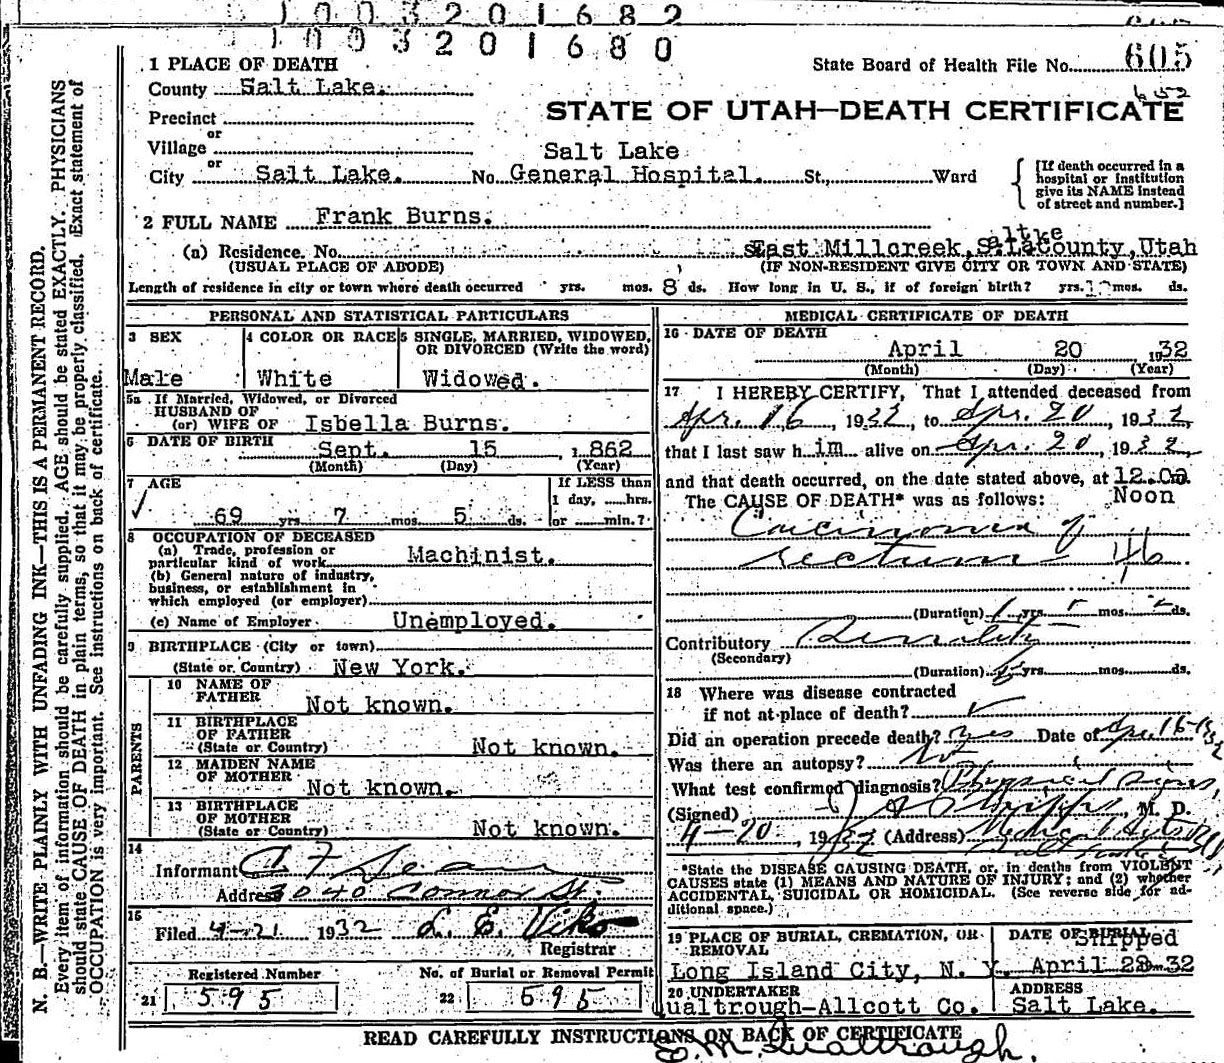 1003201682
1003201680
1 PLACE OF DEATH
State Board of Health File No. 605
652
County Salt Lake.
STATE OF UTAH—DEATH CERTIFICATE
Precinct
or
Village
Salt Lake
or
City Salt Lake. No. General Hospital. St., Ward
[If death occurred in a hospital or institution give its NAME instead of street and number.]
2 FULL NAME Frank Burns.
(a) Residence. No. East Millcreek, Salt Lake County, Utah
(USUAL PLACE OF ABODE) (IF NON-RESIDENT GIVE CITY OR TOWN AND STATE)
Length of residence in city or town where death occurred yrs. mos. 8 ds. How long in U. S., if of foreign birth? yrs. mos. ds.
PERSONAL AND STATISTICAL PARTICULARS
3 SEX
Male
4 COLOR OR RACE
White
5 SINGLE, MARRIED, WIDOWED,
OR DIVORCED (Write the word)
Widowed.
5a If Married, Widowed, or Divorced
HUSBAND OF
(or) WIFE OF Isbella Burns.
6 DATE OF BIRTH Sept. 15, 1862
(Month) (Day) (Year)
7 AGE
69 yrs. 7 mos. 5 ds.
If LESS than
1 day, hrs.
or min.?
8 OCCUPATION OF DECEASED
(a) Trade, profession or
particular kind of work Machinist.
(b) General nature of industry,
business, or establishment in
which employed (or employer)
(c) Name of Employer Unemployed.
9 BIRTHPLACE (City or town)
(State or Country) New York.
PARENTS
10 NAME OF
FATHER Not known.
11 BIRTHPLACE
OF FATHER
(State or Country) Not known.
12 MAIDEN NAME
OF MOTHER
Not known.
13 BIRTHPLACE
OF MOTHER
(State or Country) Not known.
14
Informant
Address 3040 Connor St.
15
Filed 4-21 1932 L. E. Viko
Registrar
Registered Number
21 595
No. of Burial or Removal Permit
22 595
MEDICAL CERTIFICATE OF DEATH
16 DATE OF DEATH
April 20, 1932
(Month) (Day) (Year)
17 I HEREBY CERTIFY, That I attended deceased from
Apr. 16, 1932, to Apr. 20, 1932,
that I last saw him alive on Apr. 20, 1932,
and that death occurred, on the date stated above, at 12.00m.
The CAUSE OF DEATH* was as follows: Noon
Carcinoma of
rectum 46
(Duration) 1 yrs. mos. ds.
Contributory Senility
(Secondary)
(Duration) yrs. mos. ds.
18 Where was disease contracted
if not at place of death?
Did an operation precede death? Yes Date of Apr. 16-1932
Was there an autopsy? No
What test confirmed diagnosis? Physical signs,
(Signed) M. D.
4-20, 1932 (Address)
*State the DISEASE CAUSING DEATH, or, in deaths from VIOLENT
CAUSES state (1) MEANS AND NATURE OF INJURY; and (2) whether
ACCIDENTAL, SUICIDAL OR HOMICIDAL. (See reverse side for ad-
ditional space.)
19 PLACE OF BURIAL, CREMATION, OR
REMOVAL
Long Island City, N. Y.
DATE OF BURIAL
Shipped
April 23 1932
20 UNDERTAKER
Qualtrough-Allcott Co.
ADDRESS
Salt Lake.
READ CAREFULLY INSTRUCTIONS ON BACK OF CERTIFICATE
E. M. Qualtrough.
N. B.—WRITE PLAINLY WITH UNFADING INK—THIS IS A PERMANENT RECORD.
Every item of information should be carefully supplied. AGE should be stated EXACTLY. PHYSICIANS
should state CAUSE OF DEATH in plain terms, so that it may be properly classified. Exact statement of
OCCUPATION is very important. See instructions on back of certificate.